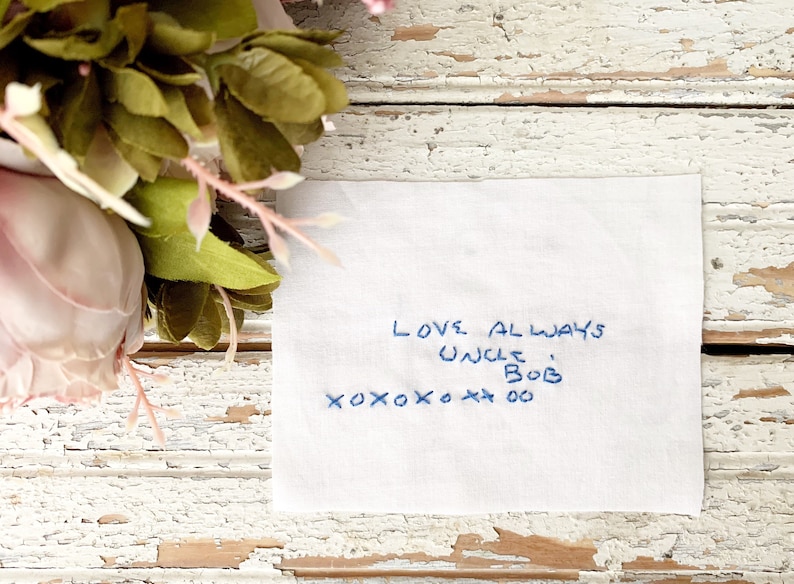 LOVE ALWAYS
UNCLE .
BOB
XOXOXOXXOO